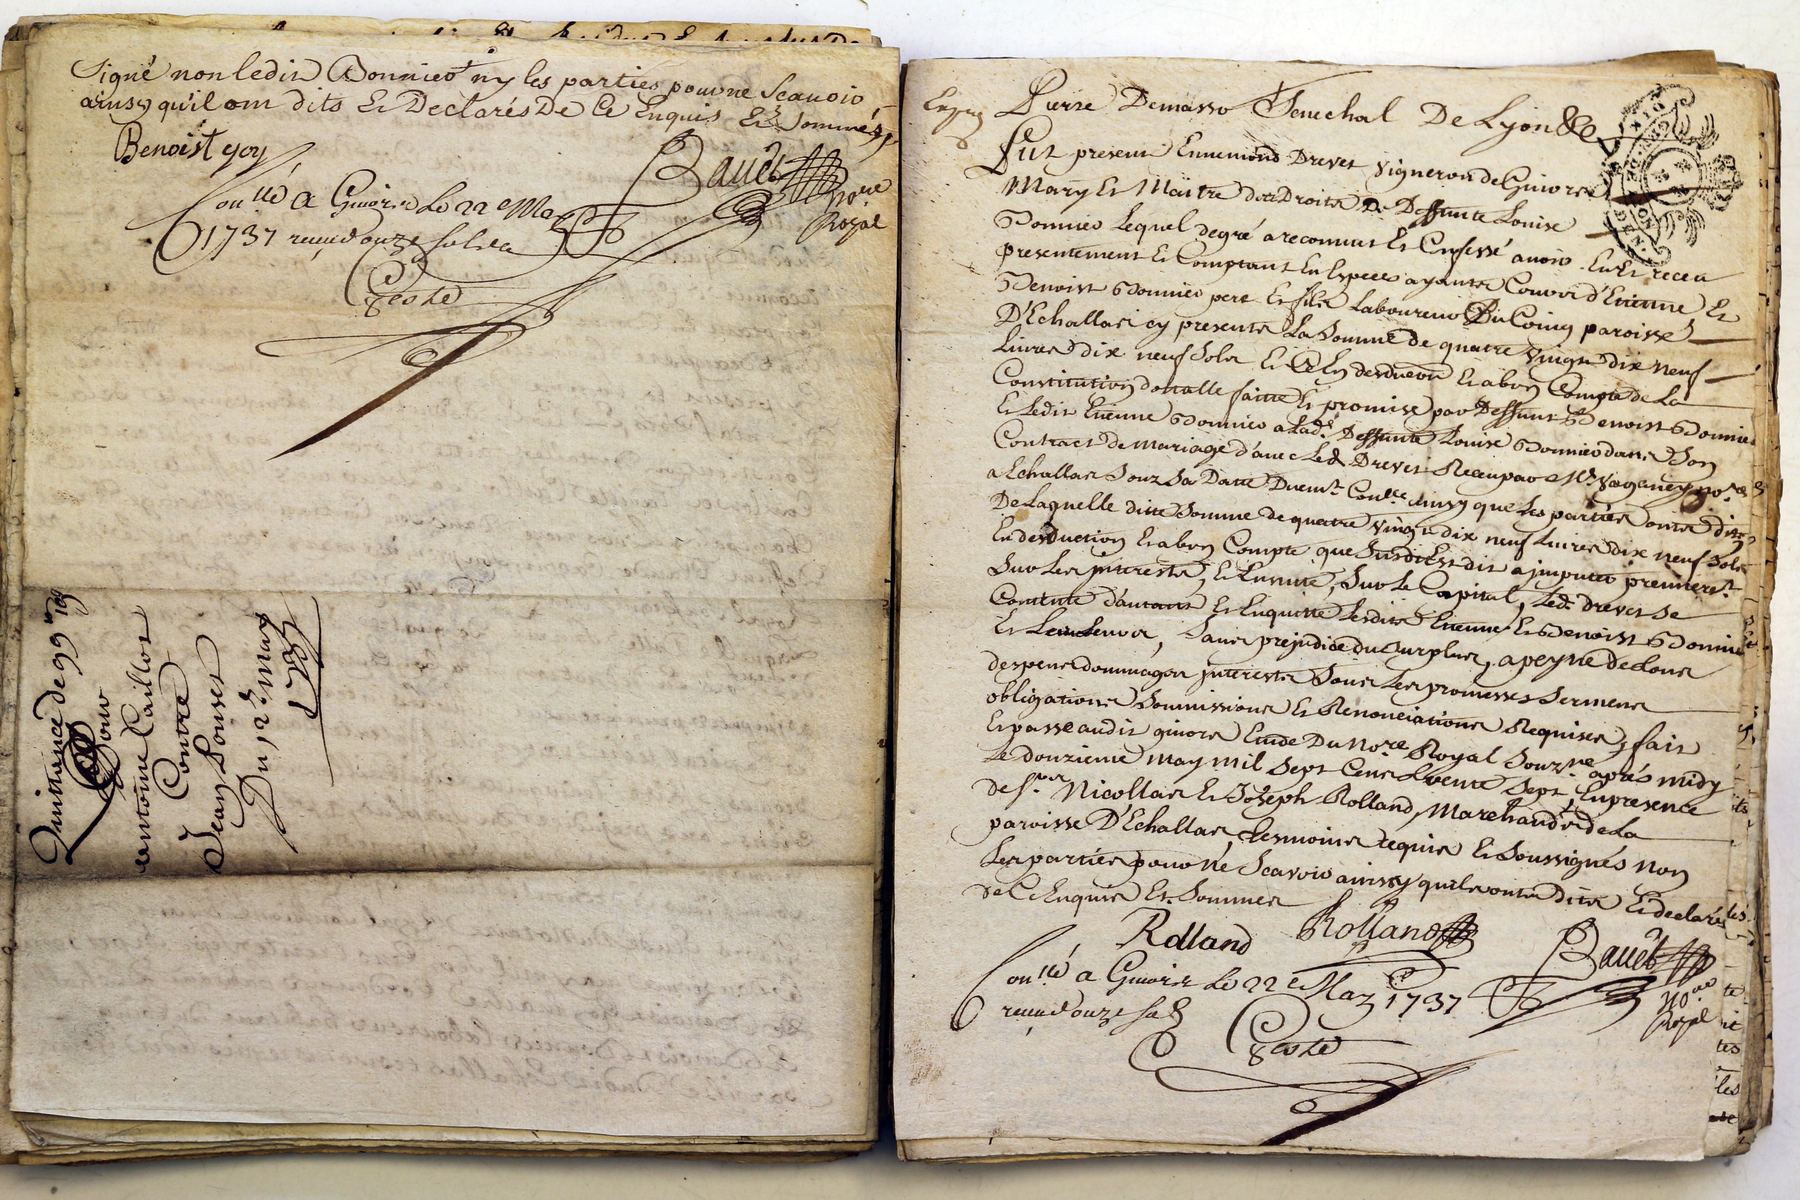 Signé non ledit Bonnier ny les parties pour ne Scavoir
ainsy qu'il ont dits Et Declarés De Ce Enquis Et Sommés
Benoist goy
Bauet
no.re
Royal
Con.llé a Givors Le 22e May
1737 receu douze sols
Coste
Quittance de 99 lt 19 s
Pour
antoine Caillot
Contre
Jean
Du 12e May
1737
Pierre Demasso Senechal De Lyon &c
Fut present Ennemond Drevet Vigneron de Givors
Mary Et Maître des Droits De Deffunte Louise
Bonnier Lequel de gré a reconnut Et Confessé avoir Eu Et receu
presentement Et Comptant En Especes ayants Cours d'Etienne Et
Benoist Bonnier pere Et fils Laboureurs Du Coing paroisse
D'Echallas cy presents La Somme de quatre vingt dix neuf
Livres dix neuf Sols Et En desduction Et a bon Compte de La
Constitution dottalle faitte Et promise par Deffunt Benoist Bonnier
Et Ledit Etienne Bonnier a Lad. Deffunte Louise Bonnier dans Son
Contract de Mariage d'avec Led. Drevet Receu par Me Vaganey no.re
a Echallas Souz Sa Datte Duem.t Con.llé ainsy que Les parties onts dits
De Laquelle ditte Somme de quatre vingt dix neuf Livres dix neuf Sols
En desduction Et a bon Compte que Susdit Est dit a jmputer premierem.t
Sur Les jnterests, Et Ensuitte, Sur Le Capital, Led. drevet Se
Contente d'autant Et Enquitte Lesdits Etienne Et Benoist Bonnier
Et Les Leurs, Sans prejudice du Surplus, a peyne de tous
despens dommages jnterests Sous Les promesses Serments
obligations Soumissions Et Renonciations Requises, fait
Et passé audit givors Etude Du No.re Royal Souz.ne après midy
Le douzieme may mil Sept Cents trente Sept, En presence
de S.rs Nicollas Et Joseph Rolland, Marchands de La
paroisse D'Echallas, tesmoins requis Et Soussignés non
Les parties pour Ne Scavoir ainsy qu'ils onts dits Et declarés
de Ce Enquis Et Sommés
Rolland Rolland
Bauet
no.re
Royal
Con.llé a Givors Le 22e May 1737
receu douze sols
Coste